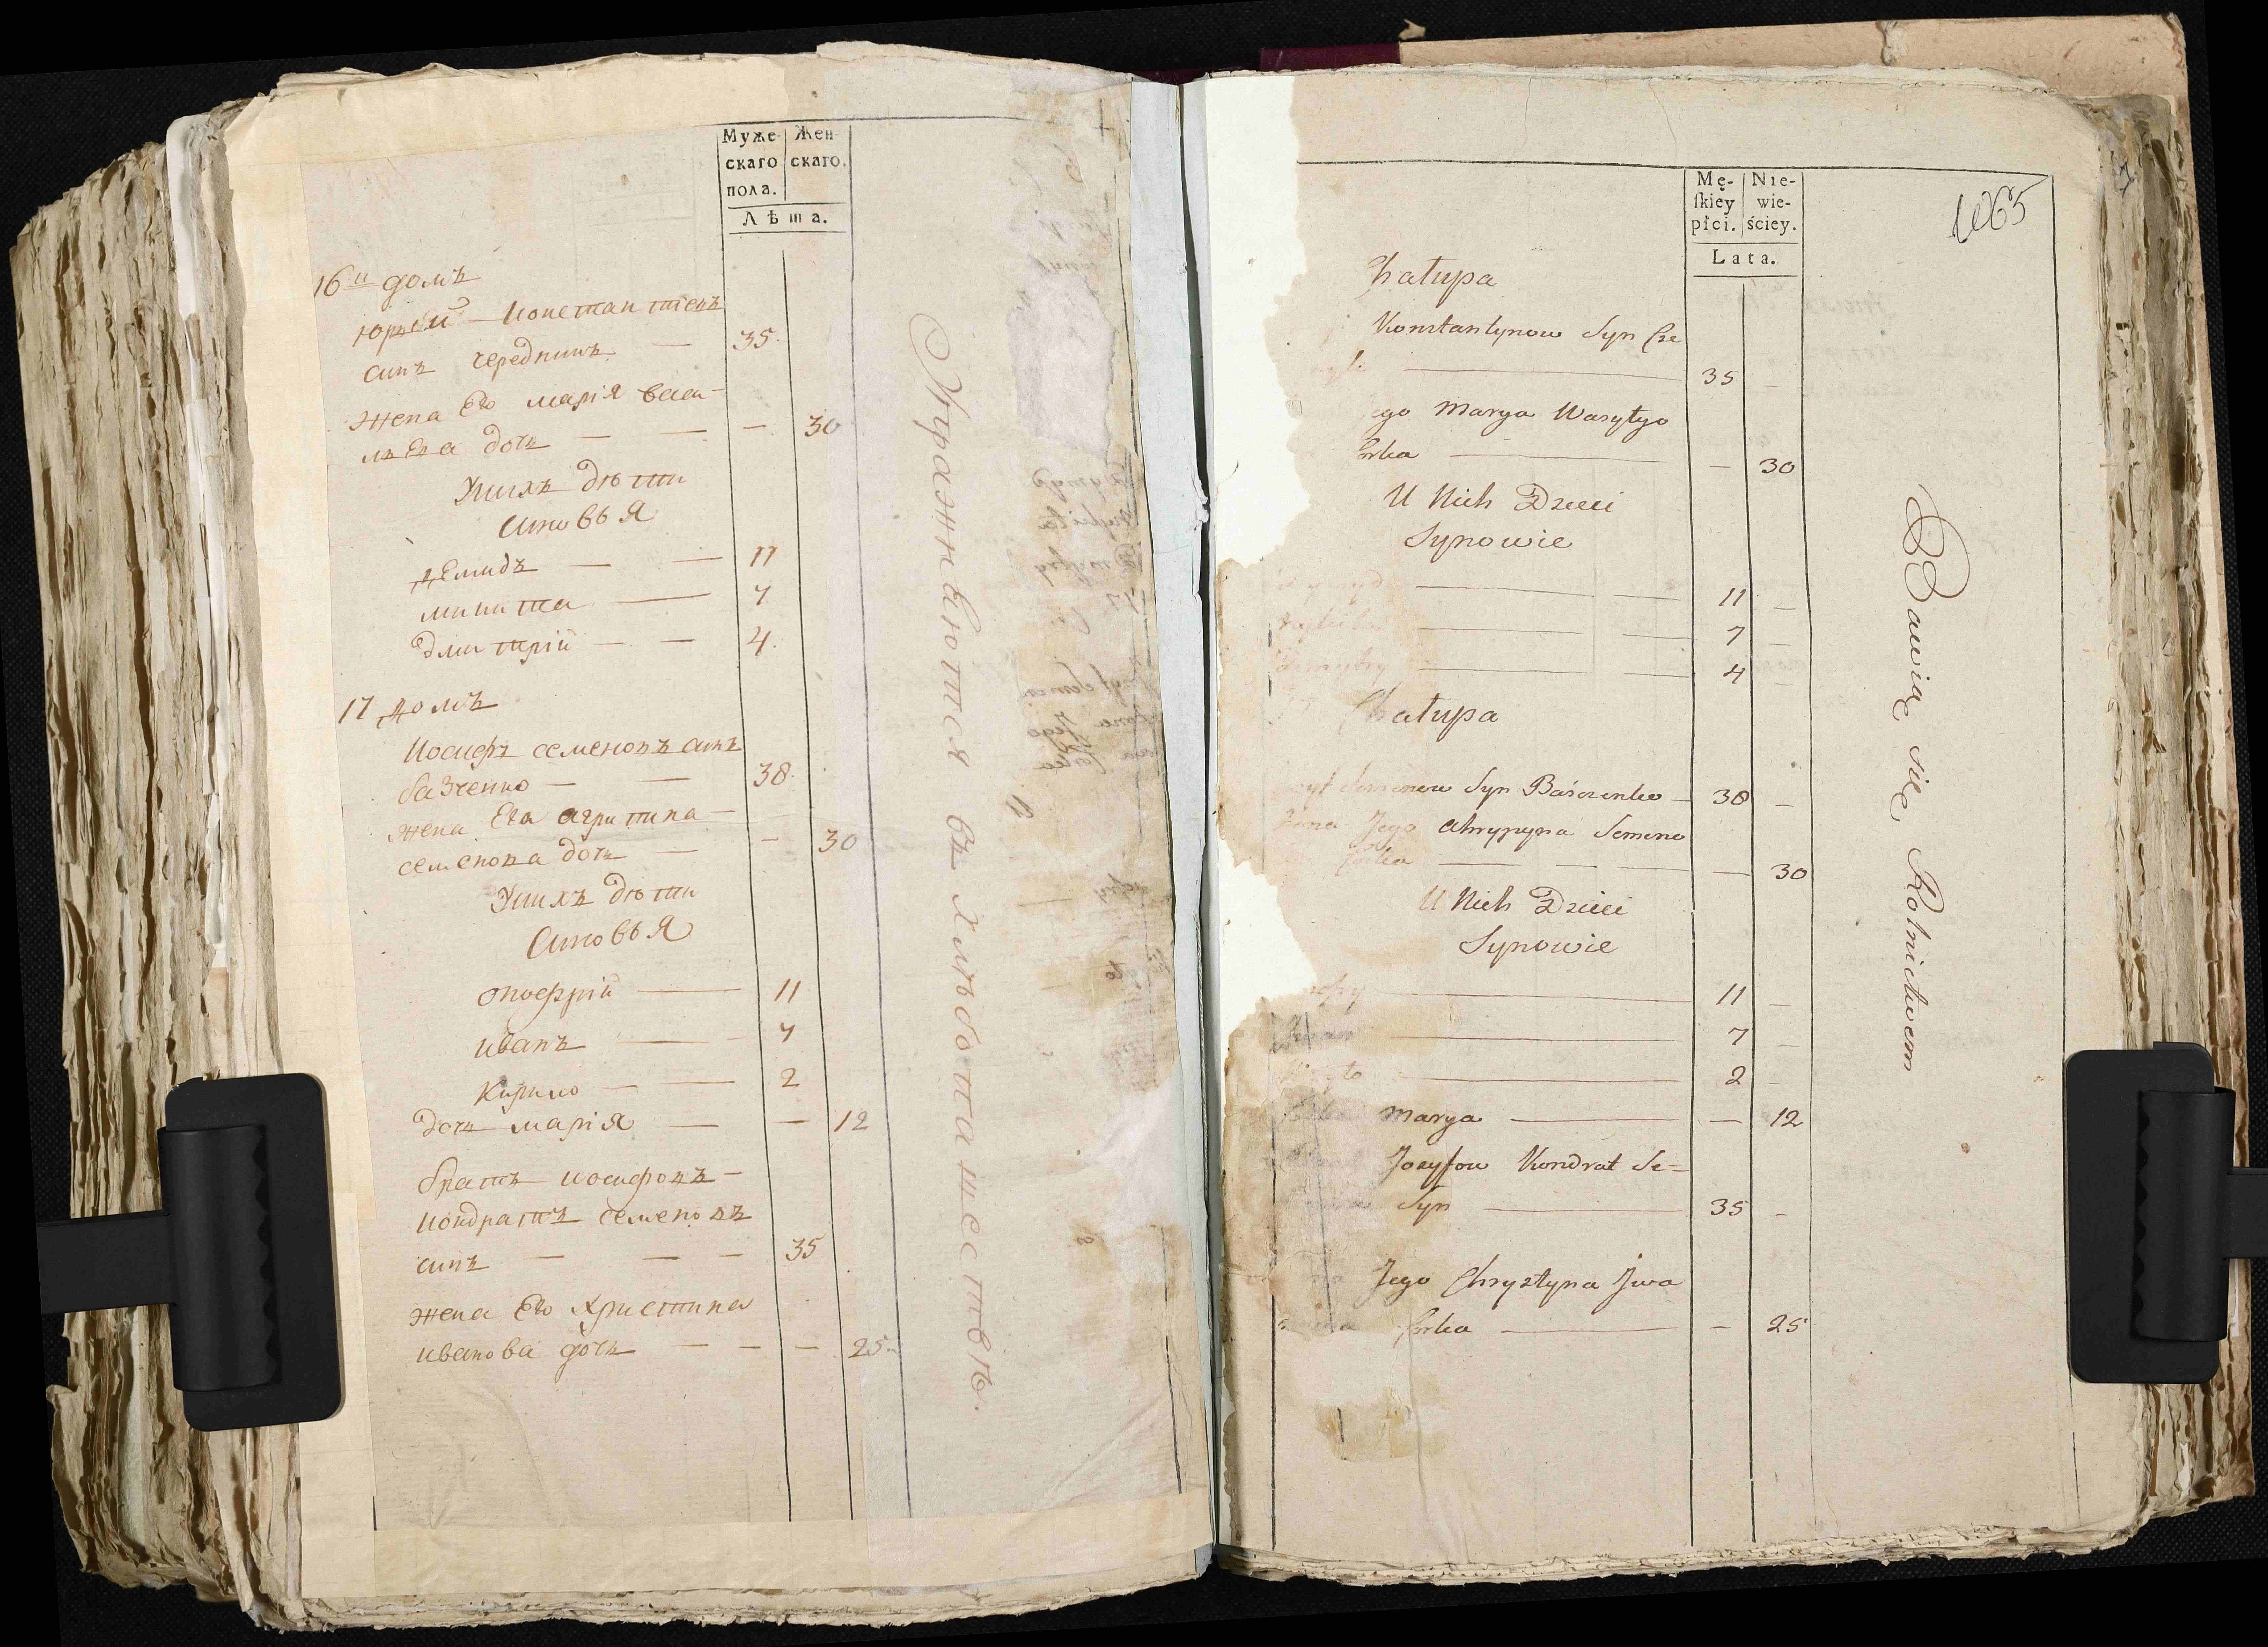 Муже-
скаго
пола.
Жен-
скаго.
Лѣта.
16й домъ
юрей Констан тиновъ
синъ чередникъ — 35
жена Его марія васи-
льева дочь — — — 30
Унихъ дѣти
синовья
демидъ — — 11
микита — 7
дмитрій — — 4
17 домъ
Иосифъ семеновъ синъ
базченко — — 38
жена Ега агрипина
семенова дочь — — 30
Унихъ дѣти
Синовья
онофрій — 11
иванъ — 7
Кирило — — 2
дочь марія — — 12
братъ иосифовъ —
кондратъ семеновъ
синъ — — — 35
жена Его христина
иванова дочь — — — 25
Упражняются въ хлѣбопашествѣ.
Mę-
ſkiey
płci.
Nie-
wie-
ściey.
Lata.
1065
Chałupa
Konstantynow Syn Cze
— 35 —
ego Marya Wasyłyo
Corka — — 30
U Nich Dzieci
Synowie
— — 11 —
Mykita — — 7 —
Dmitry — — 4 —
17 Chałupa
Semenow Syn Baśczenko — 38 —
Żona Jego Ahrypyna Semeno
Corka — — — — 30
U Nich Dzieci
Synowie
nofry — 11 —
Iwan — 7 —
— 2 —
Marya — — 12
Jozyfow Kondrat Se=
Syn — 35 —
Jego Chrystyna Jwa
Corka — — 25
Bawią się Rolnictwem